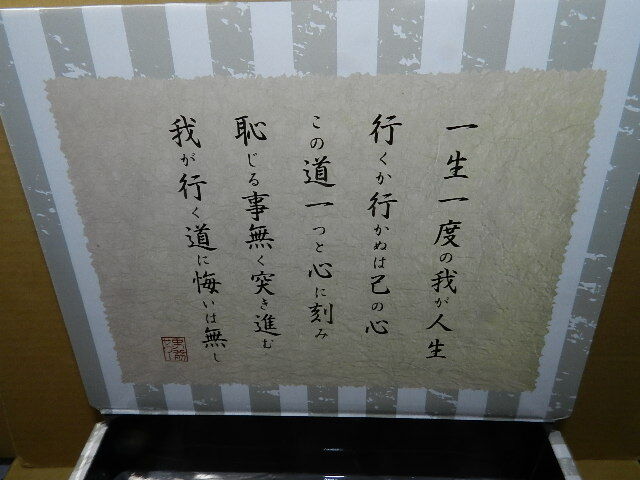 一生一度の我が人生
行くか行かぬは己の心
この道一つと心に刻み
恥じる事無く突き進む
我が行く道に悔いは無し